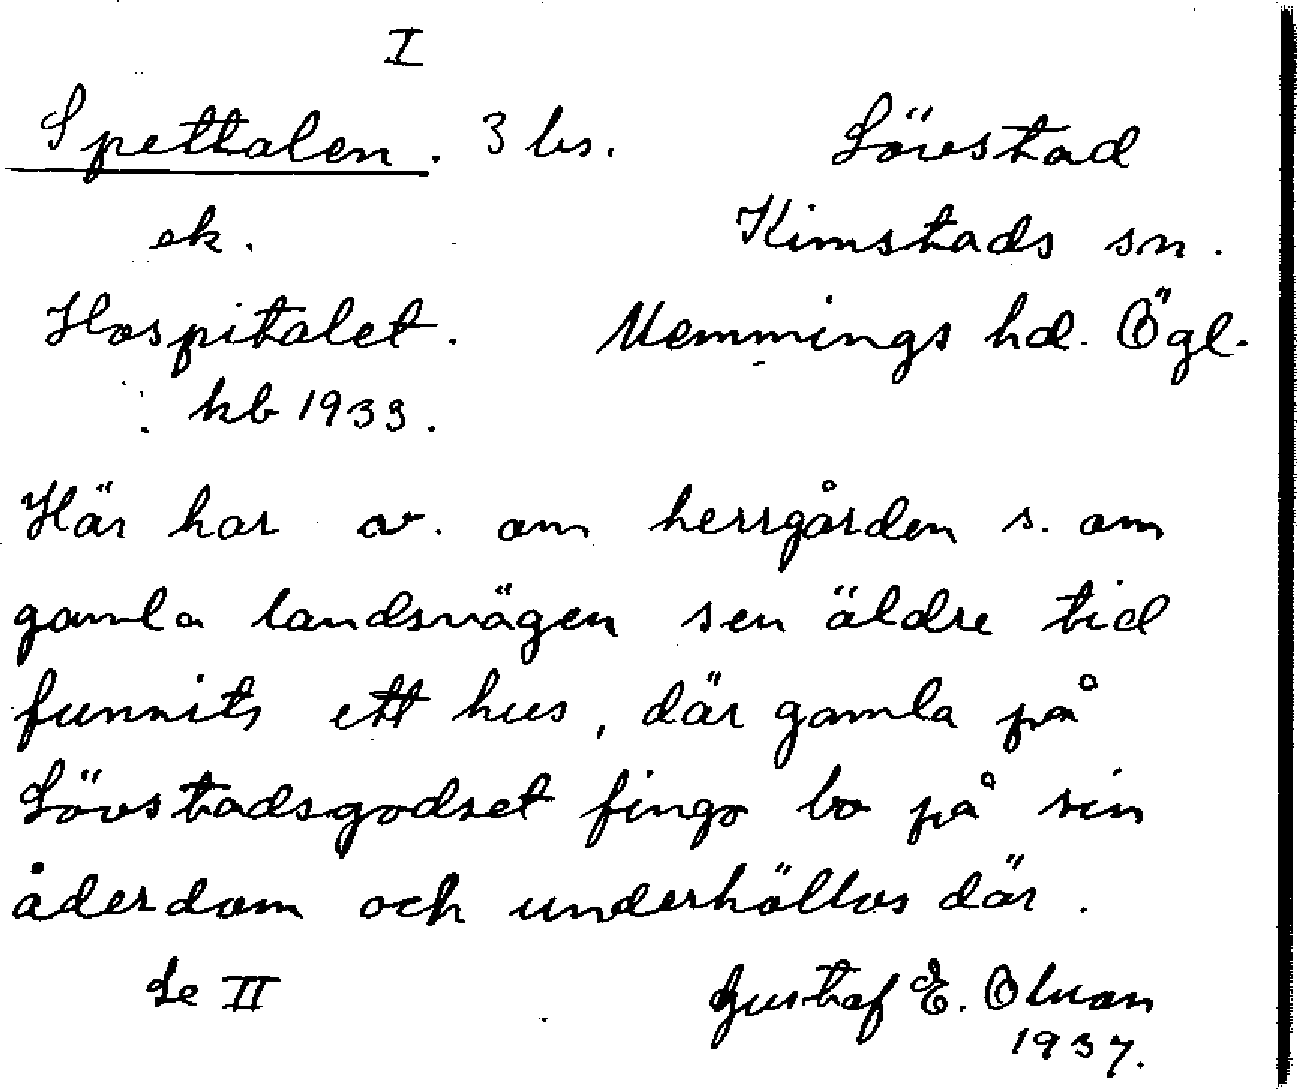 I
Spettalen. 3 lrs. Lövstad
ek. Kimstads sn.
Hospitalet. Memmings hd. Ögl.
kb 1933.
Här har av. om herrgården s. om
gamla landsvägen sen äldre tid
funnits ett hus, där gamla på
Lövstadsgodset fingo bo på sin
åderdom och underhöllos där.
Se II Gustaf E. Olsson
1937.